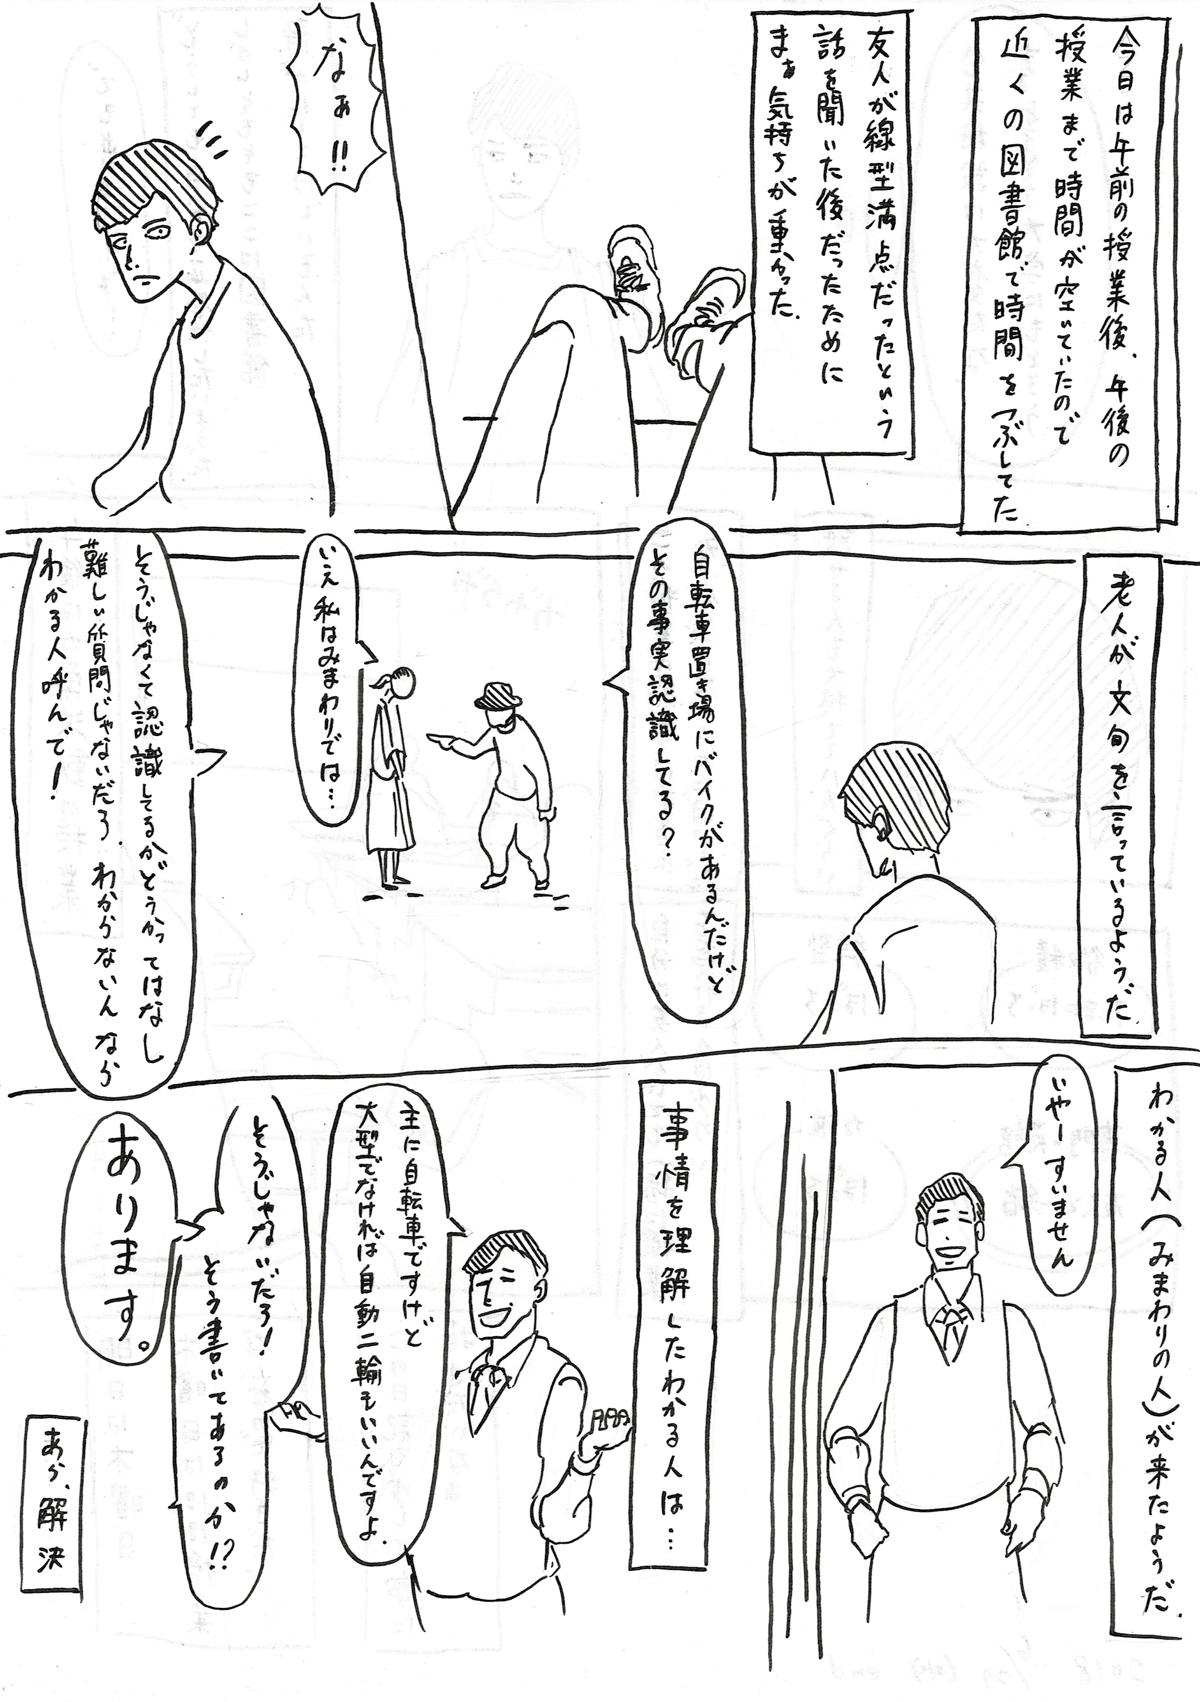 今日は午前の授業後、午後の
授業まで時間が空いていたので
近くの図書館で時間をつぶしてた
友人が線型満点だったという
話を聞いた後だったために
まぁ気持ちが重かった.
なぁ!!
老人が文句を言っているようだ.
自転車置き場にバイクがあるんだけど
その事実認識してる?
いえ私はみまわりでは…
そうじゃなくて認識してるかどうかってはなし
難しい質問じゃないだろ.わからないんなら
わかる人呼んで!
わかる人(みまわりの人)が来たようだ.
いやーすいません
事情を理解したわかる人は…
主に自転車ですけど
大型でなければ自動二輪もいいんですよ.
そうじゃないだろ!
そう書いてあるのか!?
あります。
あら、解決